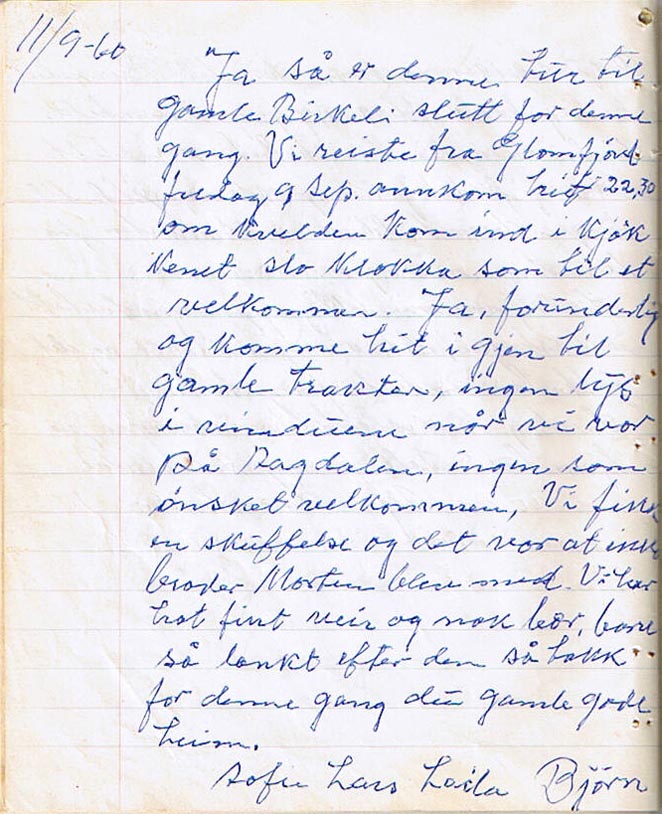 11/9-60
"Ja så er denne tur til
gamle Birkeli slutt for denne
gang. Vi reiste fra Glomfjord
fredag 9 Sep. annkom hit 22,30
om kvelden kom ind i kjök
kenet slo klokka som til et
velkommen. Ja, forunderlig
og komme hit i gjen til
gamle trakter, ingen lys
i vinduene når vi var
på Dagdalen, ingen som
ønsket velkommen, Vi fikk
en skuffelse og det var at ikke
broder Morten blev med. Vi har
hat fint veir og nok bær, bare
så lankt efter den så takk
for denne gang du gamle gode
heim.
Sofie Lars Laila Björn